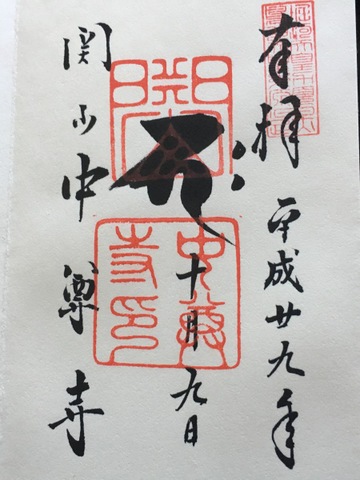 奉拝
平成廿九年
十月九日
関山中尊寺
中尊寺印